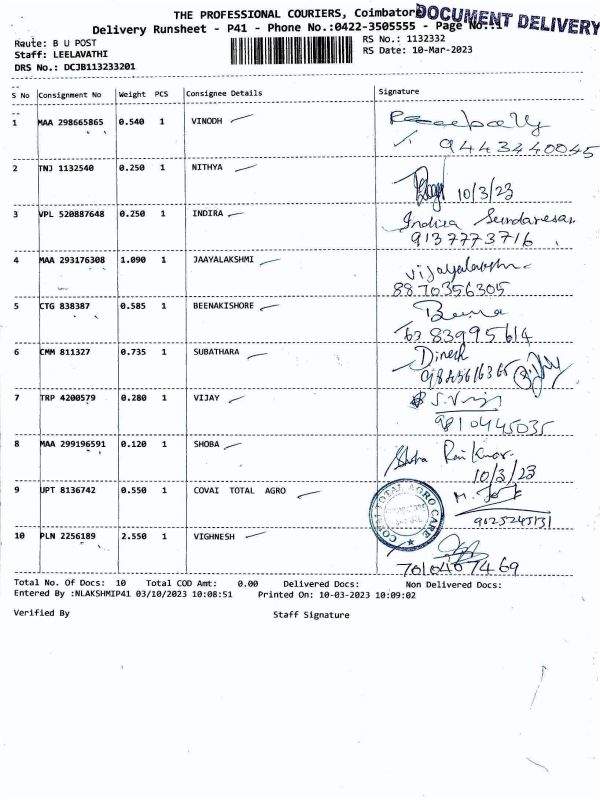 THE PROFESSIONAL COURIERS, Coimbatore
DOCUMENT DELIVERY
Delivery Runsheet - P41 - Phone No.:0422-3505555 - Page No.:1
Raute: B U POST
RS No.: 1132332
Staff: LEELAVATHI
RS Date: 10-Mar-2023
DRS No.: DCJB113233201
S No Consignment No Weight PCS Consignee Details Signature
1 MAA 298665865 0.540 1 VINODH
9443240045
2 TNJ 1132540 0.250 1 NITHYA
10/3/23
3 VPL 520887648 0.250 1 INDIRA Indira Sundaresan
9137773716
4 MAA 293176308 1.090 1 JAAYALAKSHMI
8870356305
5 CTG 838387 0.585 1 BEENAKISHORE Beena
6383995614
6 CMM 811327 0.735 1 SUBATHARA Dinesh
7 TRP 4200579 0.280 1 VIJAY
9810445035
8 MAA 299196591 0.120 1 SHOBA
10/3/23
9 UPT 8136742 0.550 1 COVAI TOTAL AGRO
COVAI TOTAL AGRO CARE
10 PLN 2256189 2.550 1 VIGHNESH
7010407469
Total No. Of Docs: 10 Total COD Amt: 0.00 Delivered Docs: Non Delivered Docs:
Entered By :NLAKSHMIP41 03/10/2023 10:08:51 Printed On: 10-03-2023 10:09:02
Verified By Staff Signature